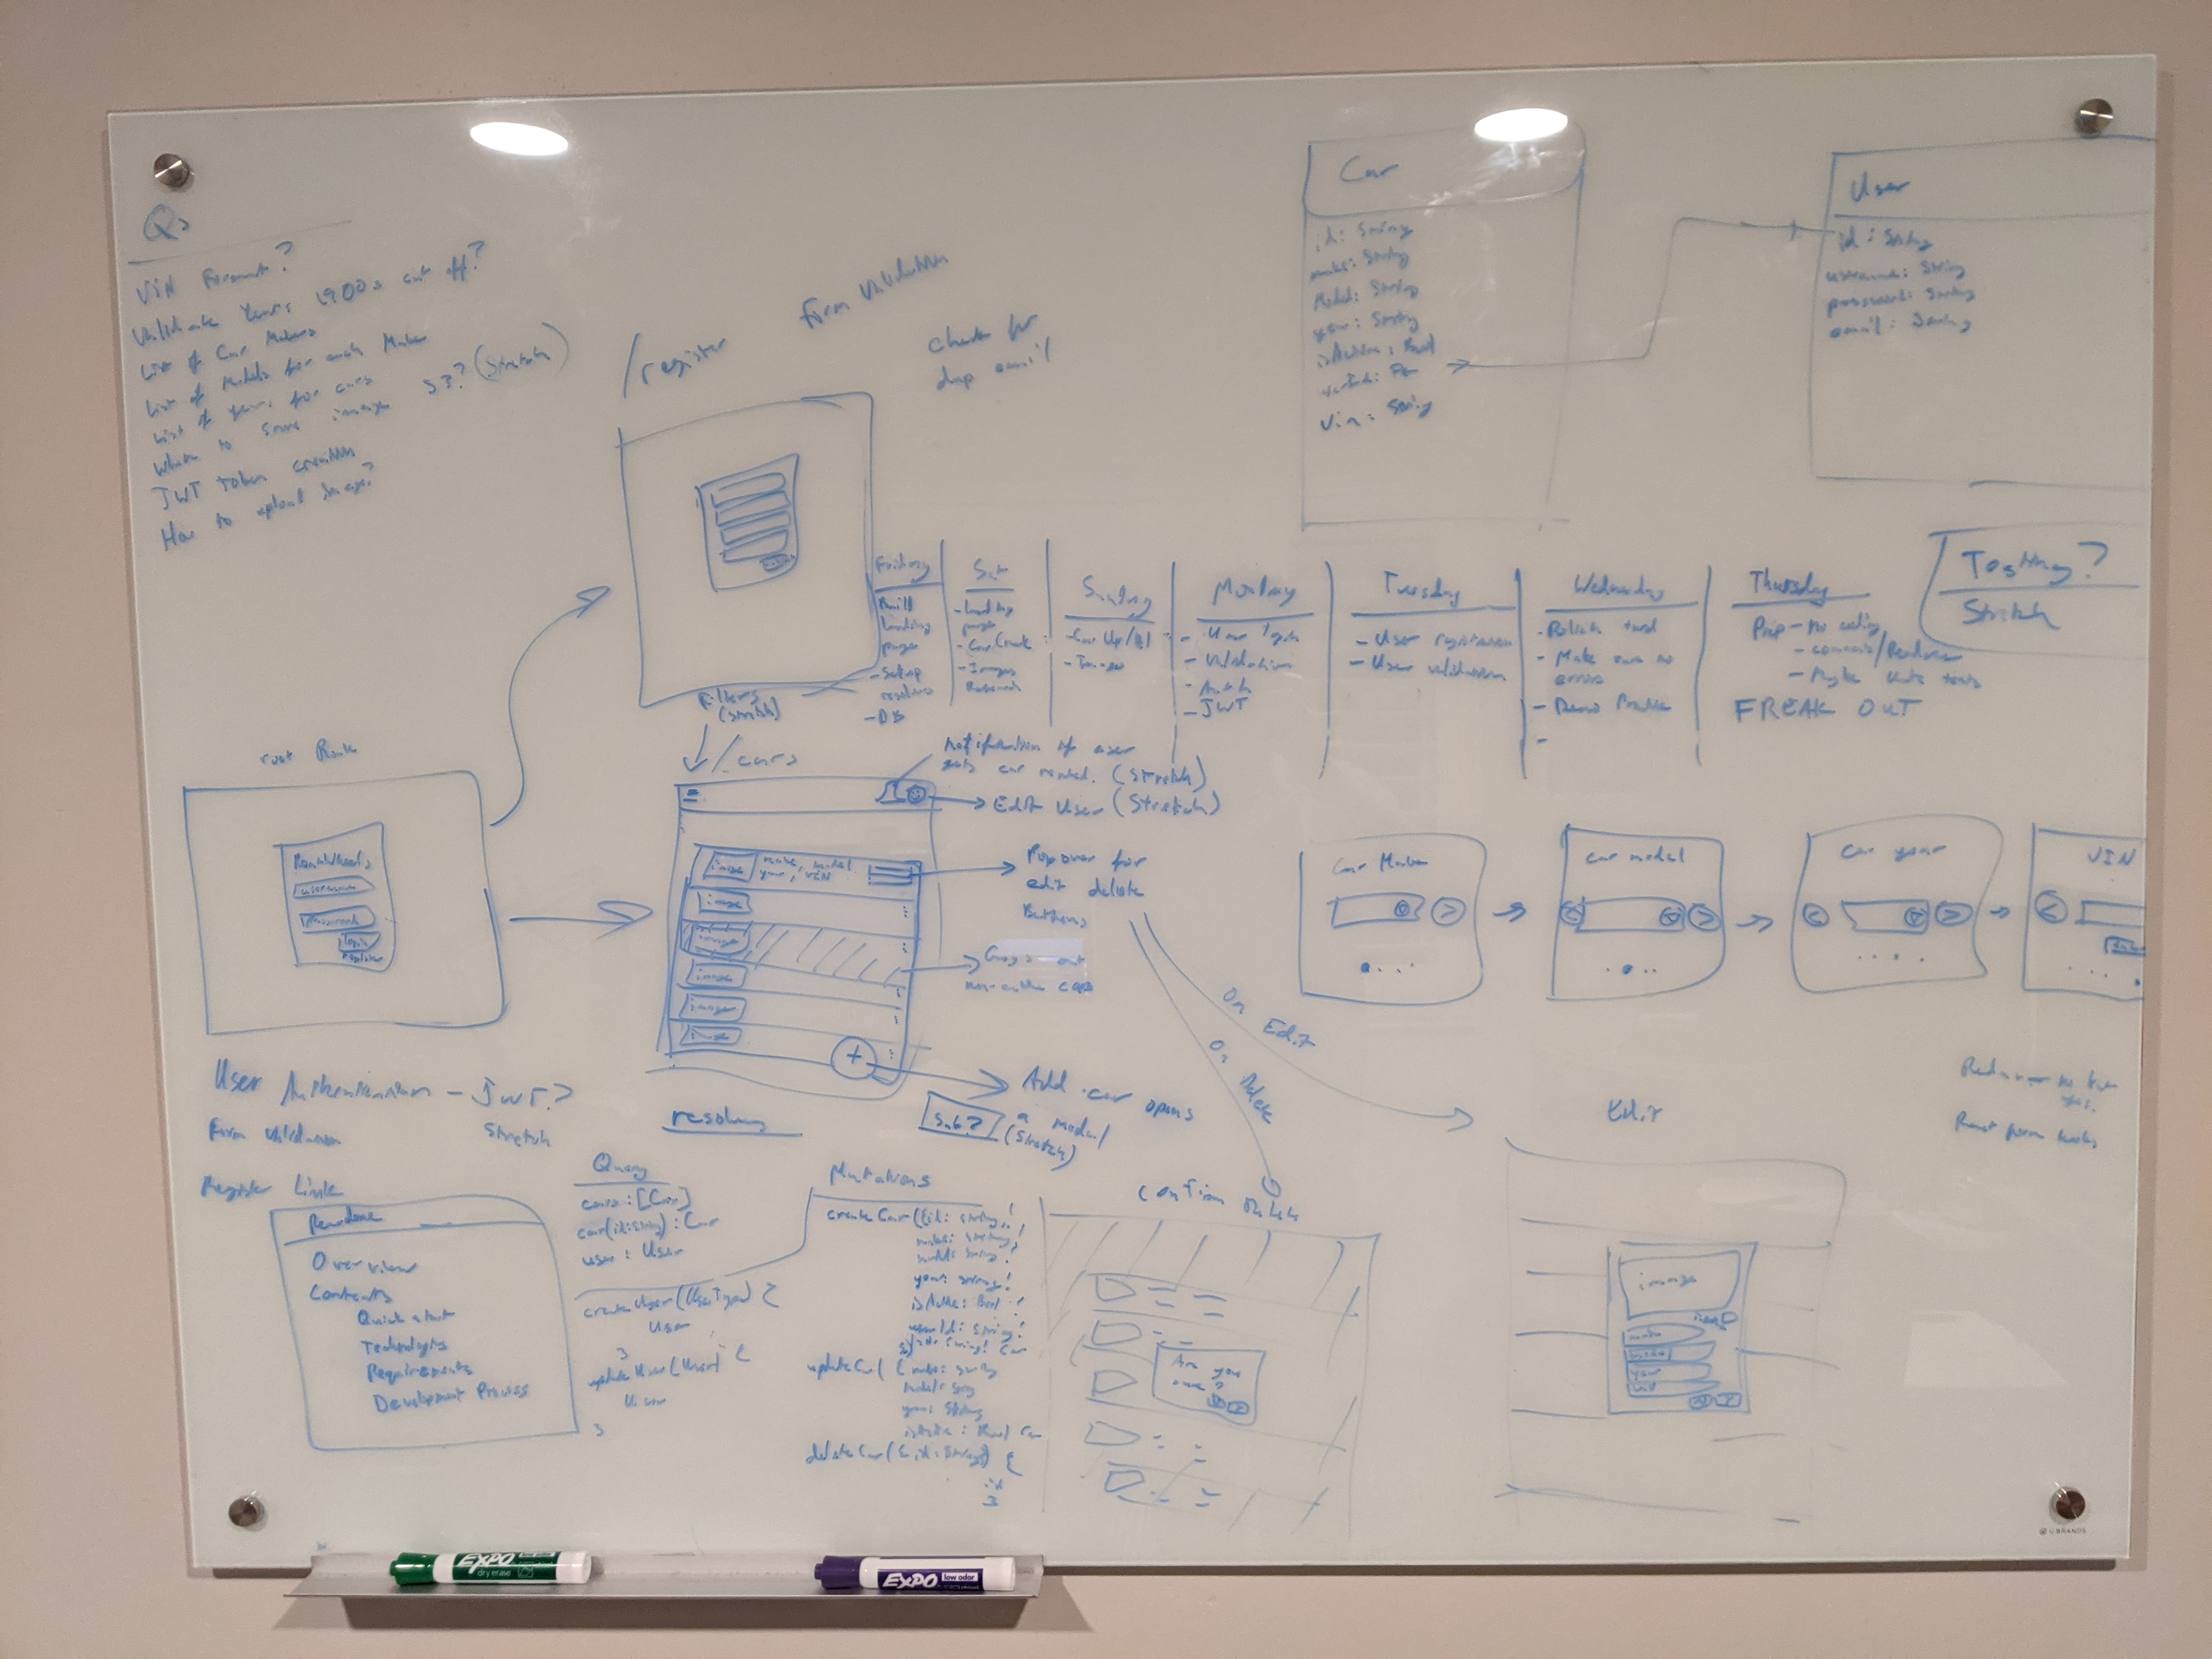 Qs
VIN Format?
Validate Years 1900s cut off?
List of Car Makers
List of Models for each Maker
List of Years for cars
Where to store image S3? (Stretch)
JWT Token creation
How to upload Image?
/register
Form Validation
check for
dup email
Car
id: String
make: String
Model: String
year: String
isActive: Bool
userId:
vin: String
User
id: String
username: String
password: String
email: String
Testing?
Stretch
Friday
Build
landing
page
- Setup
resolvers
- DB
Sat
- Landing
page
- Car Create
- Images
Research
Sunday
- Car Up/
Monday
- User login
- Validation
- Auth
- JWT
Tuesday
- User registration
- User validation
Wednesday
- Polish
- Make sure no
errors
- Demo Practice
-
Thursday
Prep - No coding
- comments/Readme
- Maybe Unit tests
FREAK OUT
Filters
(Stretch)
root Route
username
password
login
register
/cars
notification if user
gets car (Stretch)
Edit User (Stretch)
image
make, model
year, VIN
image
image
image
image
image
+
Popover for
edit delete
Buttons
Grays out
non-active cars
Add car opens
a modal
(Stretch)
Car Maker
car model
Car year
VIN
On Edit
On Delete
User Authentication - JWT?
Stretch
Form Validation
Register Link
Readme
Overview
Contents
Quick start
Technologies
Requirements
Development Process
resolvers
Query
cars: [Car]
car(id: String): Car
user: User
createUser(UserType) {
User
}
updateUser(User) {
User
}
Mutations
createCar({id: String!
make: String!
model: String!
year: String!
isActive: Bool!
userId: String!
updateCar( { make: String
model: String
year: String
isActive: Bool
deleteCar({id: String}) {
id
}
Confirm Delete
Are you
sure?
Edit
image
React form hooks
EXPO
low odor
dry erase
EXPO
low odor
U BRANDS